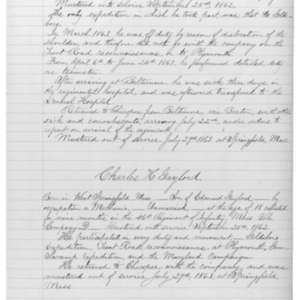 Mustered into service September 25th 1862.
The only expedition in which he took part was that to Golds-
boro.
In March 1863 he was off duty by reason of dislocation of the
shoulder, and therefore did not go with the company on the
Trent Road reconnoissance, or to Plymouth.
From April 6th to June 24th 1863 he performed detailed duty
as teamster.
After arriving at Baltimore he was sick three days in
the regimental hospital, and was afterward transferred to the
Hospital.
Returned to Chicopee from Baltimore, via Boston, with other
sick and convalescents, arriving July 22nd, and to
report on arrival of the regiment.
Mustered out of service July 29th 1863 at Springfield, Mass.
Charles H. Gaylord.
Born in West Springfield, Mass. Son of Edmund Gaylord by
occupation a Mechanic. Unmarried at the age of 18 enlisted
for nine months in the 46th Regiment of Infantry, Mass. Vol.
Company D. Mustered into service September 25th 1862.
He participated in every duty and movement. Goldsboro
Expedition, Trent Road reconnoissance, at Plymouth, Gum
Swamp expedition and the Maryland Campaign.
He returned to Chicopee with the company, and was
mustered out of service July 29th 1863 at Springfield,
Mass.